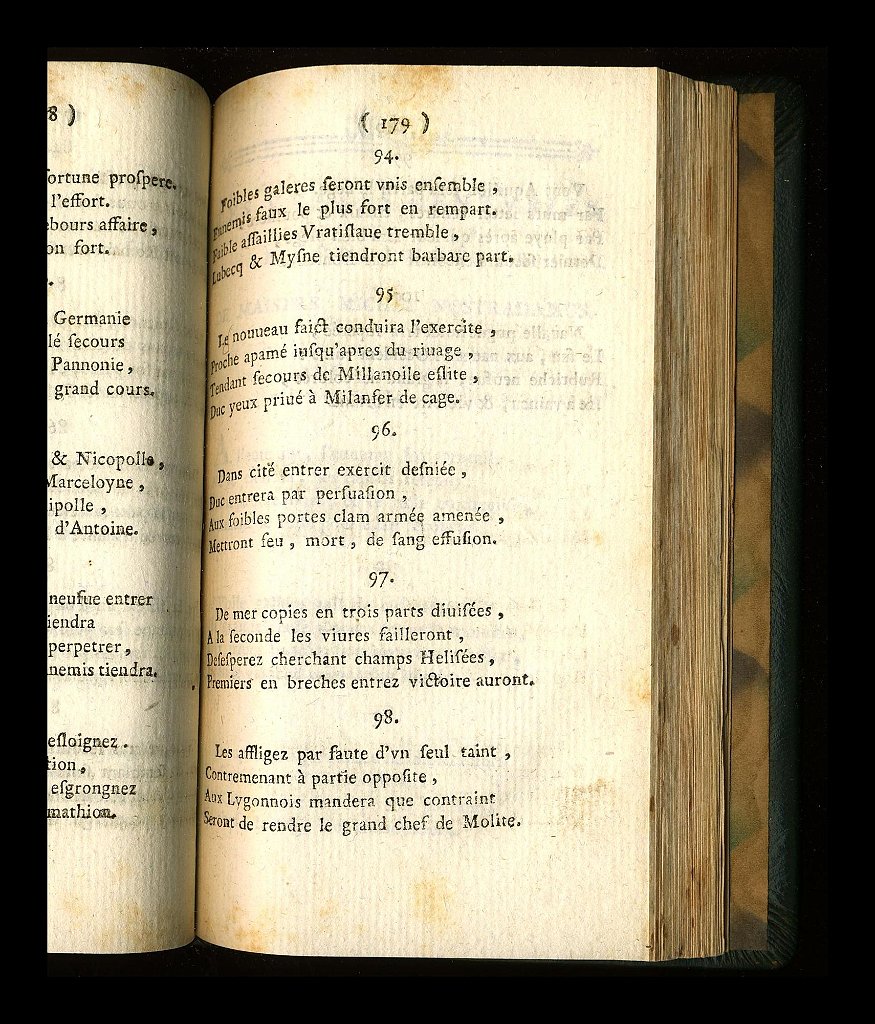 8 )
fortune profpere.
l'effort.
bours affaire,
on fort.
Germanie
lé fecours
Pannonie,
grand cours.
& Nicopolle,
Marceloyne,
ipolle,
d'Antoine.
neufue entrer
iendra
perpetrer,
nemis tiendra.
efloignez.
tion,
efgrongnez
mathion.
( 179 )
94.
Foibles galeres feront vnis enfemble,
Ennemis faux le plus fort en rempart.
Faible affaillies Vratiflaue tremble,
Lubecq & Myfne tiendront barbare part.
95
Le nouueau faict conduira l'exercite,
Proche apamé iufqu'apres du riuage,
Tendant fecours de Millanoile eflite,
Duc yeux priué à Milanfer de cage.
96.
Dans cité entrer exercit defniée,
Duc entrera par perfuafion,
Aux foibles portes clam armée amenée,
Mettront feu, mort, de fang effufion.
97.
De mer copies en trois parts diuifées,
A la feconde les viures failleront,
Defefperez cherchant champs Helifées,
Premiers en breches entrez victoire auront.
98.
Les affligez par faute d'vn feul taint,
Contremenant à partie oppofite,
Aux Lygonnois mandera que contraint
Seront de rendre le grand chef de Molite.